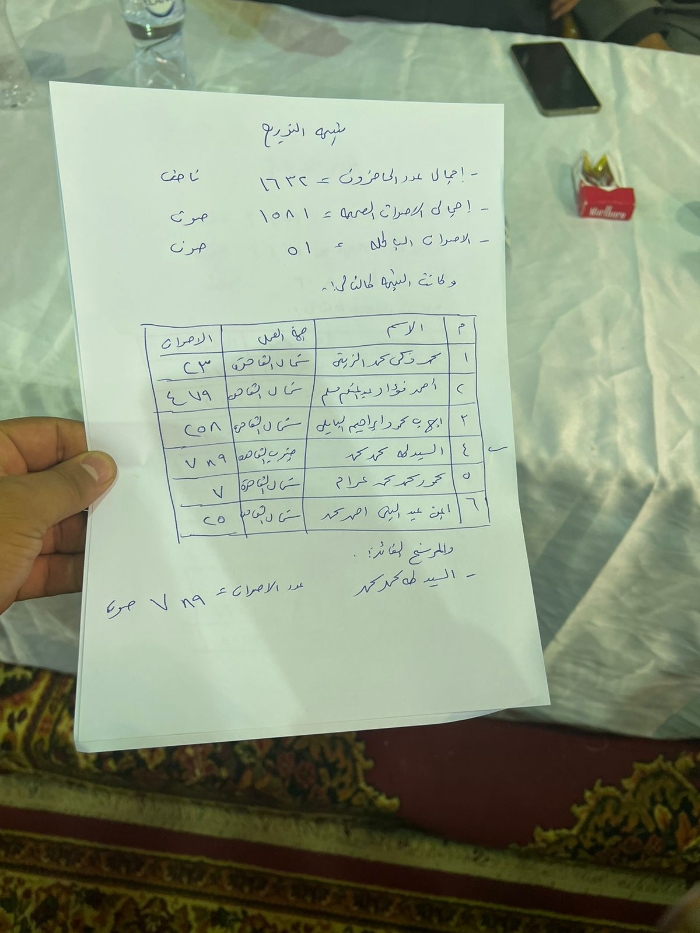 نتيجة التوزيع
- إجمالى عدد الحاضرون = ١٦٣٢ ناخب
- إجمالى الاصوات الصحيحه = ١٥٨١ صوت
- الاصوات الباطله = ٥١ صوت
وكانت النتيجه كالتالى :-
م الاسم جهة العمل الاصوات
١ محمد زكى محمد الزينى شمال القاهرة ٢٣
٢ احمد فؤاد مسلم شمال القاهرة ٤٧٩
٣ ايهاب محمود ابراهيم شمال القاهرة ٢٥٨
٤ السيد طه محمد محمد جنوب القاهرة ٧٨٩
٥ محمود محمد محمد عزام شمال القاهرة ٧
٦ ايمن عبد النبى احمد محمد شمال القاهرة ٢٥
والمرشح الفائز :.
- السيد طه محمد محمد عدد الاصوات = ٧٨٩ صوت
Marlboro